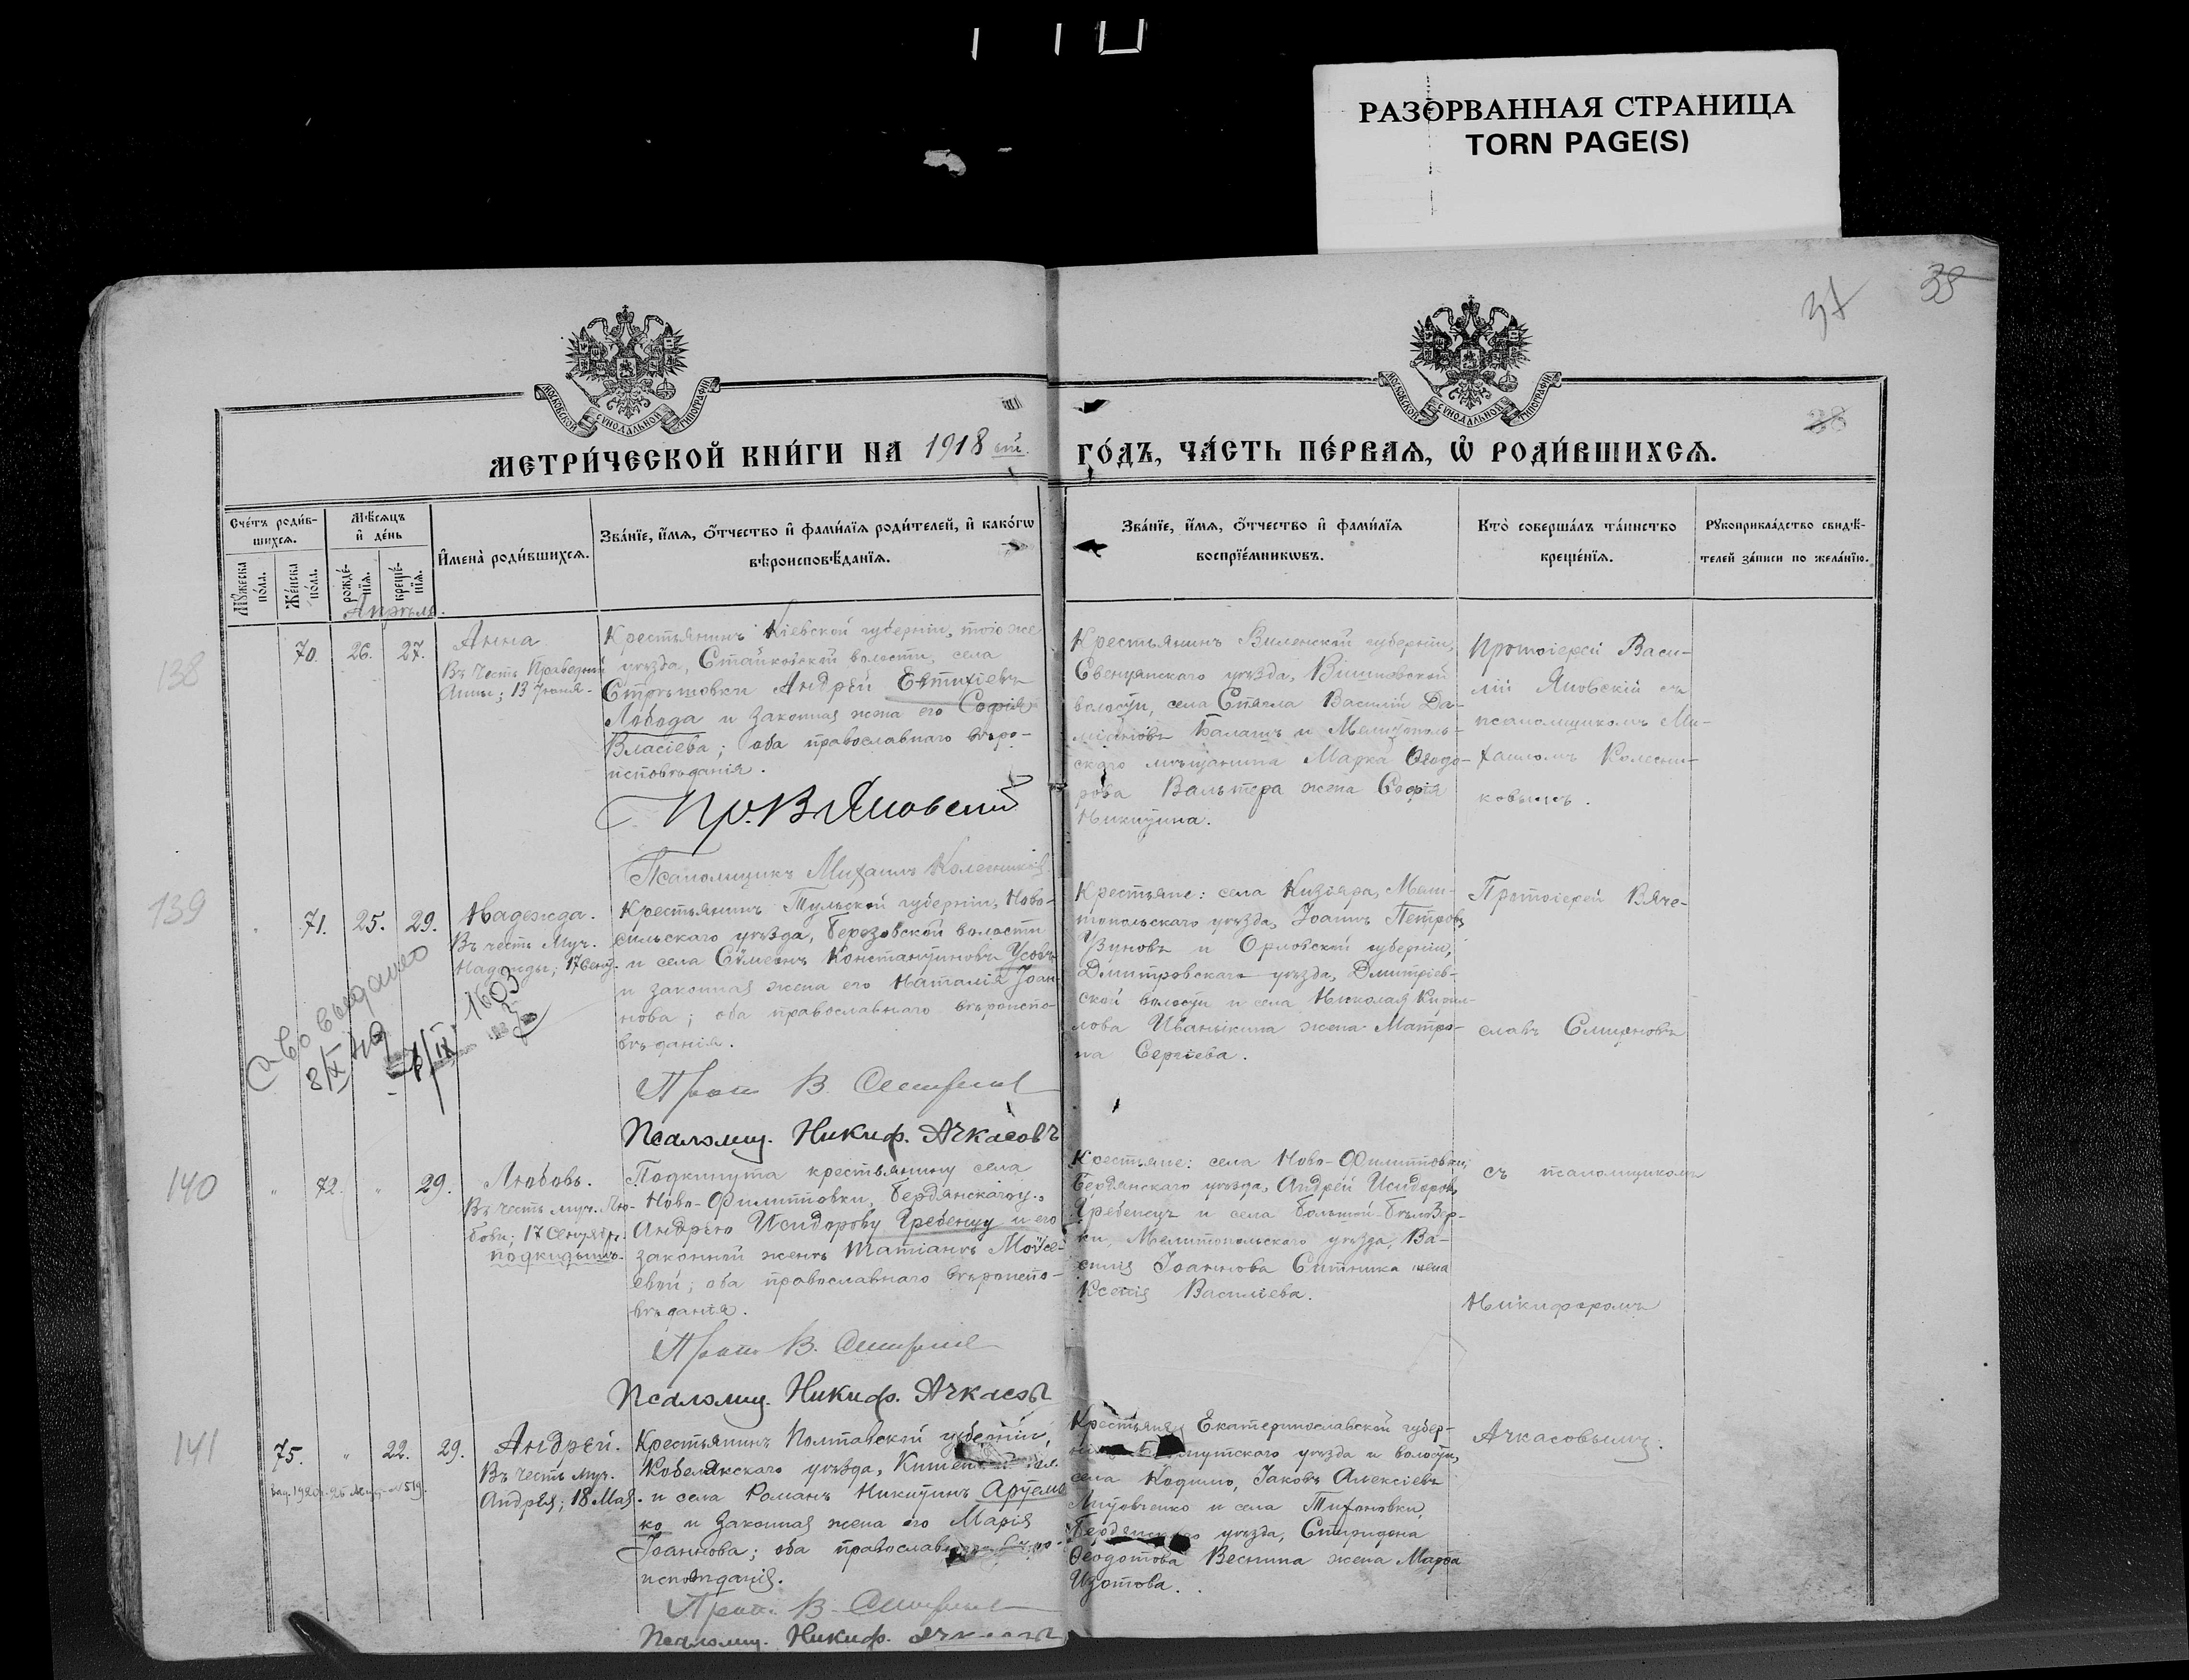 РАЗОРВАННАЯ СТРАНИЦА
TORN PAGE(S)
37
38
38
МОСКОВСКОЙ СѴНОДАЛЬНОЙ ТИПОГРАФІИ
МОСКОВСКОЙ СѴНОДАЛЬНОЙ ТИПОГРАФІИ
МЕТРИ́ЧЕСКОЙ КНИ́ГИ НА 1918 ый
ГО́ДЪ, ЧА́СТЬ ПЕ́РВАѦ, Ѡ҆ РОДИ́ВШИХСѦ.
Сче́тъ роди́в-
шихсѧ.
Мꙋ́жеска по́ла.
Же́нска по́ла.
Мѣ́сѧцъ и҆ де́нь
рожде́-нїѧ.
креще́-нїѧ.
И҆мена̀ роди́вшихсѧ.
Зва́нїе, и҆́мѧ, ѻ҆́тчество и҆ фами́лїѧ роди́телей, и҆ како́гѡ
вѣроисповѣ́данїѧ.
Зва́нїе, и҆́мѧ, ѻ҆́тчество и҆ фами́лїѧ
воспрїе́мникѡвъ.
Кто̀ соверша́лъ та́инство
креще́нїѧ.
Рꙋкоприкла́дство свидѣ́-
телей за́писи по жела́нїю.
Апрѣль.
138
70.
26.
27.
Анна
Въ честь Праведной
Анны;
Крестьянинъ Кіевской губерніи, того же
уѣзда, Стайковской волости, села
Стрѣтовки Андрей Евтихіевъ
Лобода и законная жена его Софія
Власіева; оба православнаго вѣро-
исповѣданія.
Пр. В Яновскій
Псаломщикъ Михаилъ Колесниковъ
Крестьянинъ Виленской губерніи,
Свенцянскаго уѣзда,
волости, села Василій Да-
міановъ Балашъ и Мелитополь-
скаго мѣщанина Марка Ѳеодо-
рова Вальтера жена Софія
Никитина.
Протоіерей Васи-
лій Яновскій съ
псаломщикомъ Ми-
хаиломъ Колесни-
ковымъ.
139
71.
25.
29.
Надежда.
Въ честь Муч.
Надежды; 17 Сент.
Крестьянинъ Тульской губерніи, Ново-
сильскаго уѣзда, Березовской волости
и села Сѵмеонъ Константиновъ Усовъ
и законная жена его Наталія Іоан-
нова; оба православнаго вѣроиспо-
вѣданія.
Прот. В. Смирновъ
Псаломщ. Никиф. Ачкасовъ
Крестьяне: села Кизіяра, Мели-
топольскаго уѣзда, Іоаннъ Петровъ
и Орловской губерніи,
Дмитровскаго уѣзда, Дмитріев-
ской волости и села Николая Кирил-
лова Иванькина жена Матро-
на Сергіева.
Протоіерей Вяче-
славъ Смирновъ
8/X
1603
140
"
72.
"
29.
Любовь.
Въ честь муч. Лю-
бови; 17 Сентября.
подкидышъ.
Подкинута крестьянину села
Ново-Филипповки, Бердянскаго у.,
Андрею Исидорову Гребенцу и его
законной женѣ Татіанѣ Моѵсе-
евой; оба православнаго вѣроиспо-
вѣданія.
Прот. В. Смирновъ
Псаломщ. Никиф. Ачкасовъ
Крестьяне: села Ново-Филипповки,
Бердянскаго уѣзда, Андрей Исидоровъ
Гребенецъ и села Большой-Бѣлозер-
ки, Мелитопольскаго уѣзда, Ва-
силія Іоаннова Ситника жена
Ксенія Василіева.
съ псаломщикомъ
Никифоромъ
141
75.
"
22.
29.
Андрей.
Въ честь муч.
Андрея; 18 Мая.
Крестьянинъ Полтавской губерніи,
Кобелякскаго уѣзда,
и села Романъ Никитинъ
ко и законная жена его Марія
Іоаннова; оба православнаго вѣро-
исповѣданія.
Прот. В. Смирновъ
Псаломщ. Никиф.
Крестьяне Екатеринославской губер-
уѣзда и волости,
села Кодимо, Іаковъ Алексіевъ
и села Тихоновки,
Бердянскаго уѣзда, Спиридона
Ѳеодотова Веснина жена Марѳа
Изотова.
Ачкасовымъ.